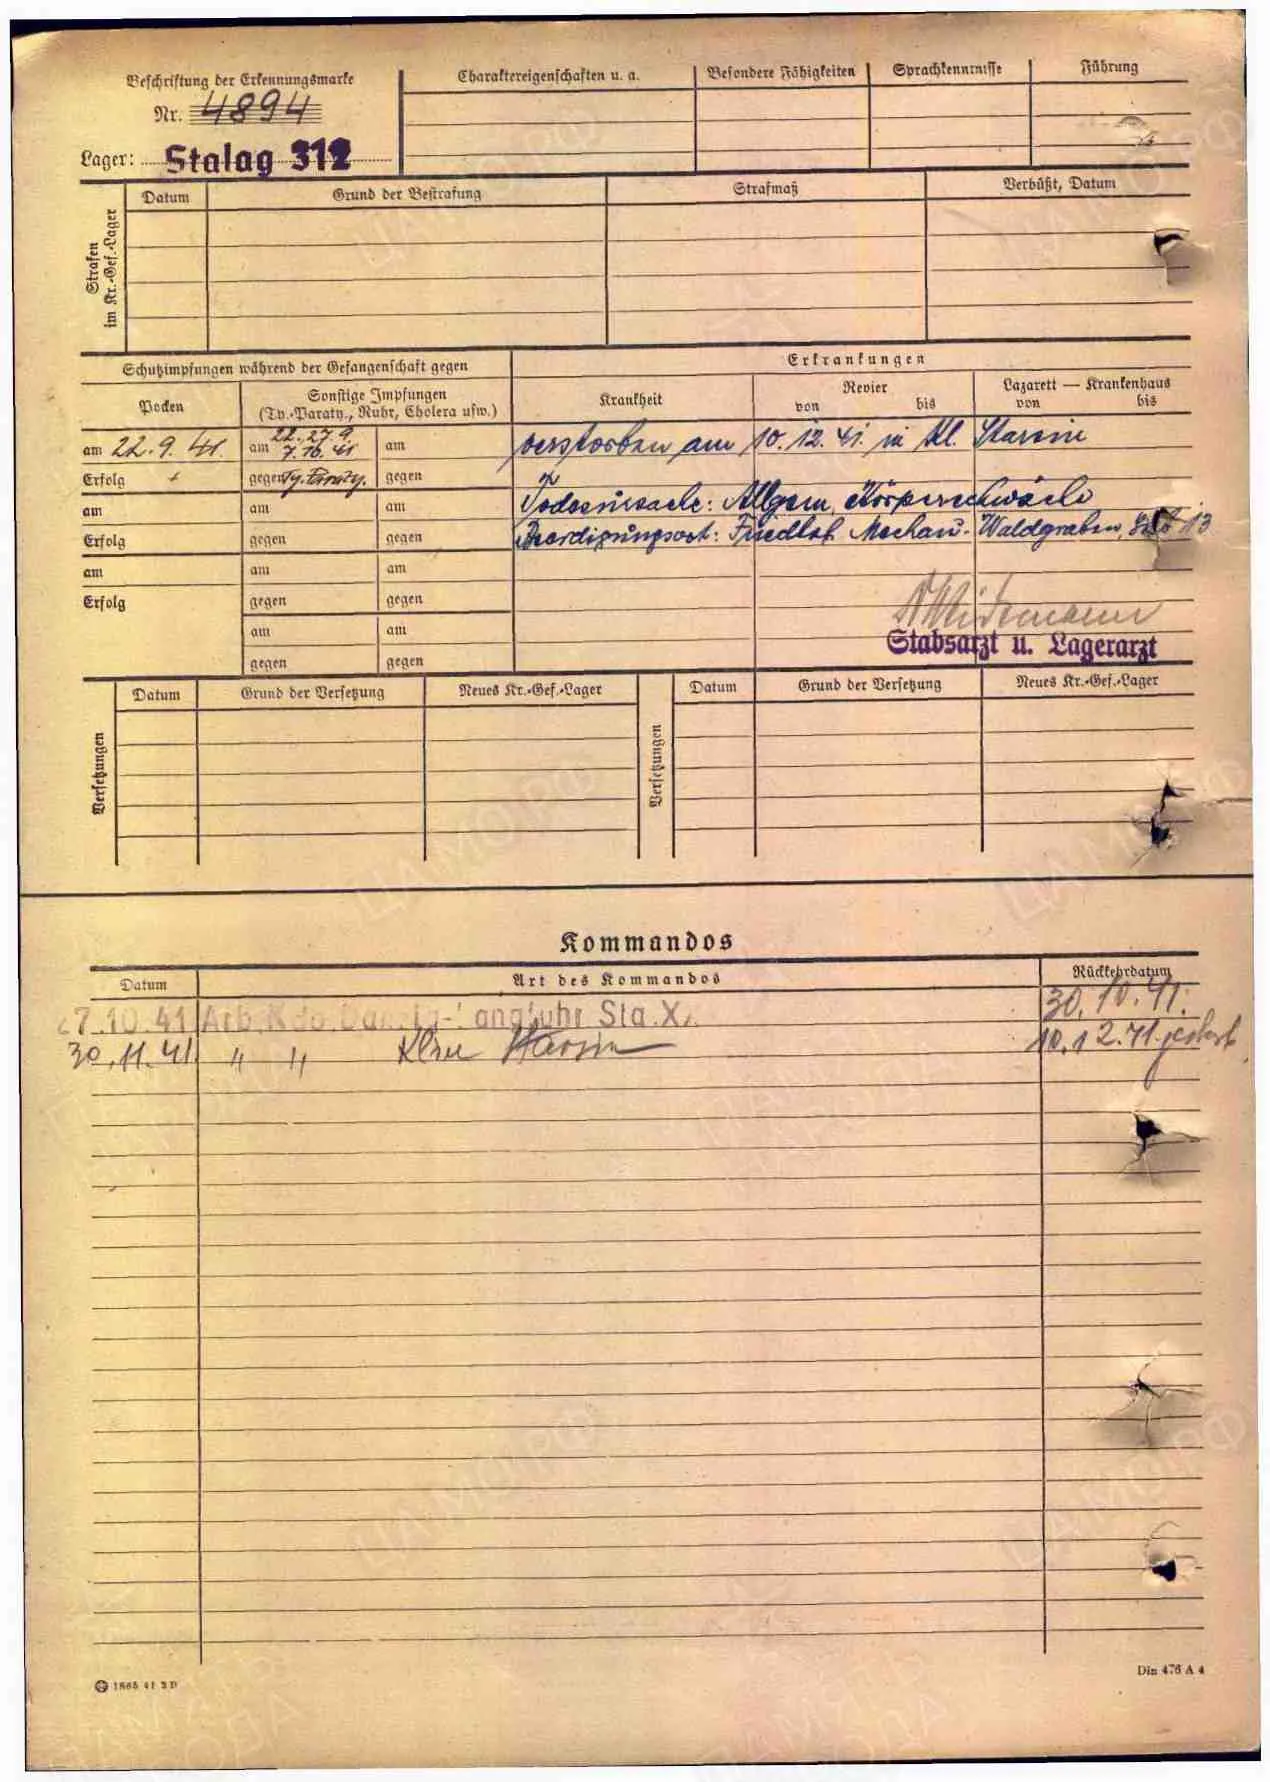 Beschriftung der Erkennungsmarke
Nr. 4894
Lager: Stalag 312
Charaktereigenschaften u. a.
Besondere Fähigkeiten
Sprachkenntnisse
Führung
Strafen im Kr.-Gef.-Lager
Datum
Grund der Bestrafung
Strafmaß
Verbüßt, Datum
Schutzimpfungen während der Gefangenschaft gegen
Erkrankungen
Pocken
Sonstige Impfungen
(Ty.-Paraty., Ruhr, Cholera usw.)
Krankheit
Revier
von bis
Lazarett — Krankenhaus
von bis
am 22. 9. 41. am 22. 27. 9. am
7. 10. 41
verstorben am 10. 12. 41. in Kl. Starsin
Erfolg + gegen Ty. Paraty. gegen
am am am
Todesursache: Allgem. Körperschwäche
Erfolg gegen gegen
Beerdigungsort: Friedhof Mechau-Waldgraben, 13
am am am
Erfolg gegen gegen
am am
gegen gegen
Stabsarzt u. Lagerarzt
Versetzungen
Datum
Grund der Versetzung
Neues Kr.-Gef.-Lager
Versetzungen
Datum
Grund der Versetzung
Neues Kr.-Gef.-Lager
Kommandos
Datum
Art des Kommandos
Rückkehrdatum
27.10.41 Arb. Kdo. Danzig-Langfuhr Sta. XX 30. 10. 41.
30. 11. 41. " " Klein Starsin 10. 12. 41. gestorb.
1865 41 2 D
Din 476 A 4
ЦАМО.РФ
ПАМЯТЬ НАРОДА